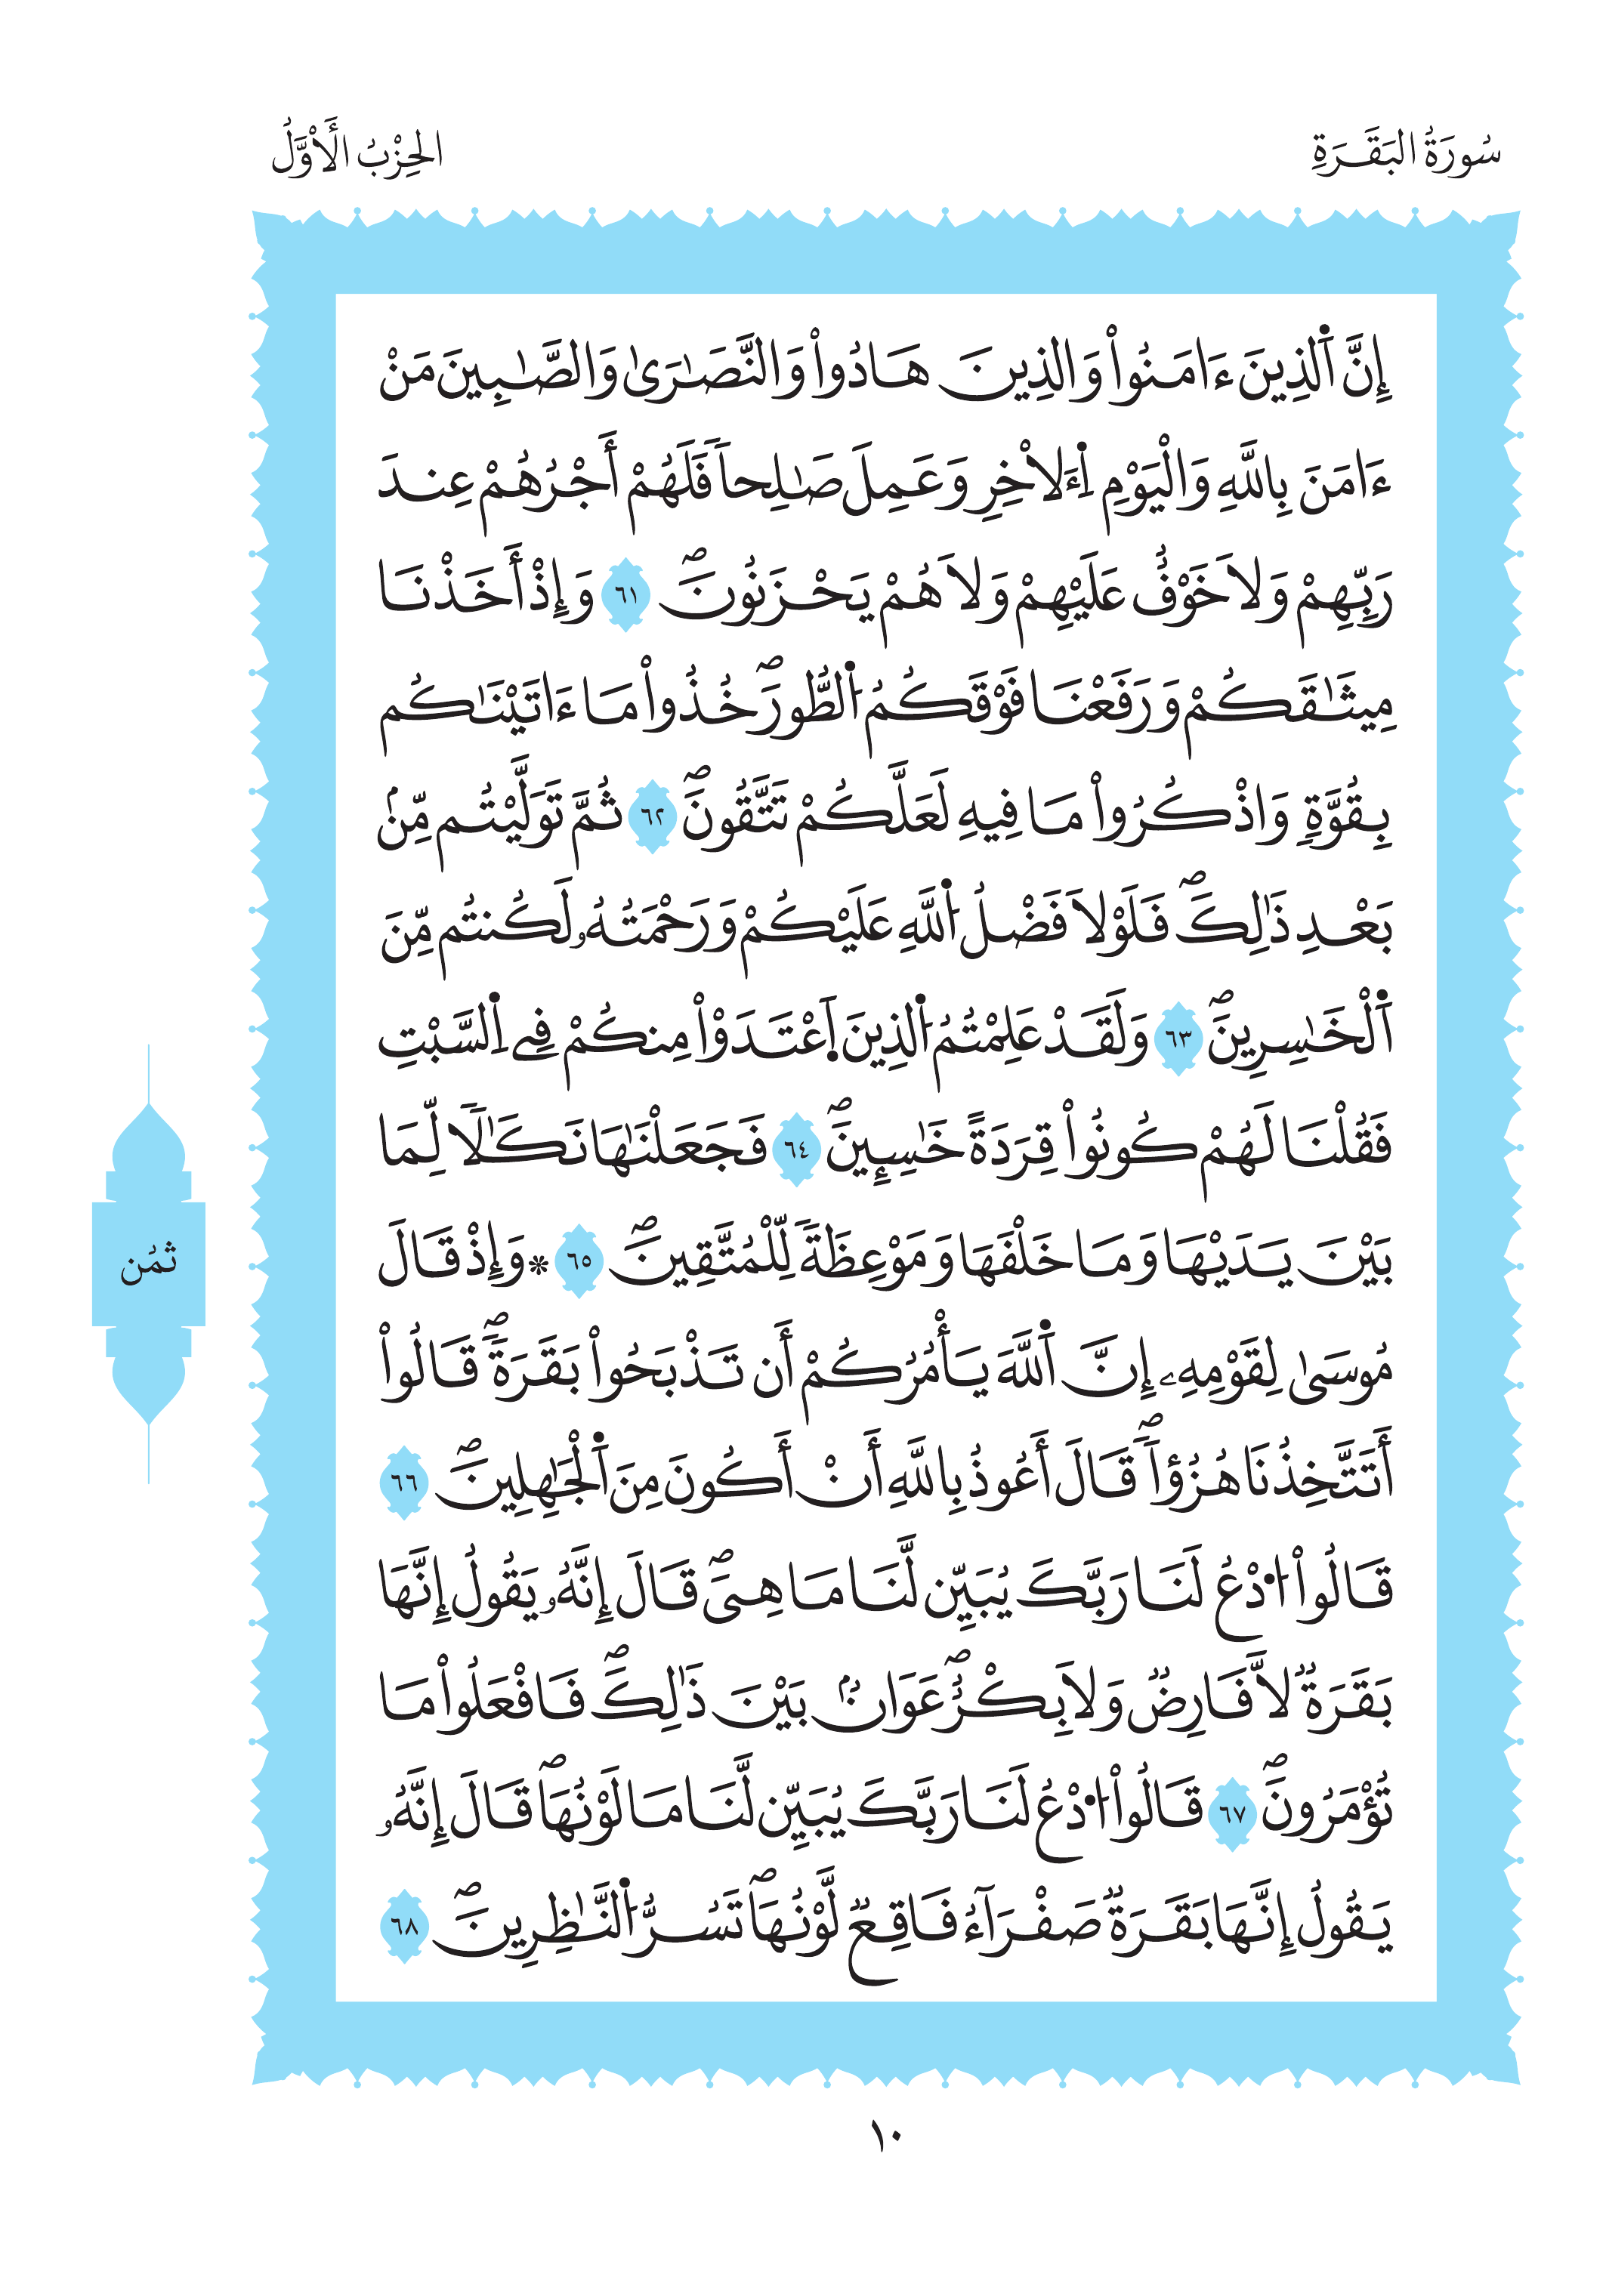 سُورَةُ البَقَرَةِ
الحِزْبُ الَاوَّلُ
إِنَّ اَ۬لذِينَ ءَامَنُواْ وَالذِينَ هَادُواْ وَالنَّصَٰرَىٰ وَالصَّٰبِينَ مَنْ
ءَامَنَ بِاللَّهِ وَالْيَوْمِ اِ۬ءَلَاخِرِ وَعَمِلَ صَٰلِحاٗ فَلَهُمْ أَجْرُهُمْ عِندَ
رَبِّهِمْ وَلَا خَوْفٌ عَلَيْهِمْ وَلَا هُمْ يَحْزَنُونَۖ ٦١ وَإِذْ أَخَذْنَا
مِيثَٰقَكُمْ وَرَفَعْنَا فَوْقَكُمُ اُ۬لطُّورَۖ خُذُواْ مَا ءَاتَيْنَٰكُم
بِقُوَّةٖ وَاذْكُرُواْ مَا فِيهِ لَعَلَّكُمْ تَتَّقُونَۖ ٦٢ ثُمَّ تَوَلَّيْتُم مِّنۢ
بَعْدِ ذَٰلِكَۖ فَلَوْلَا فَضْلُ اُ۬للَّهِ عَلَيْكُمْ وَرَحْمَتُهُۥ لَكُنتُم مِّنَ
اَ۬لْخَٰسِرِينَۖ ٦٣ وَلَقَدْ عَلِمْتُمُ اُ۬لذِينَ اَ۪عْتَدَوْاْ مِنكُمْ فِے اِ۬لسَّبْتِ
فَقُلْنَا لَهُمْ كُونُواْ قِرَدَةً خَٰسِـِٕينَۖ ٦٤ فَجَعَلْنَٰهَا نَكَٰلاٗ لِّمَا
بَيْنَ يَدَيْهَا وَمَا خَلْفَهَا وَمَوْعِظَةٗ لِّلْمُتَّقِينَۖ ٦٥ * وَإِذْ قَالَ
مُوسَىٰ لِقَوْمِهِۦ إِنَّ اَ۬للَّهَ يَأْمُرُكُمْ أَن تَذْبَحُواْ بَقَرَةٗۖ قَالُواْ
أَتَتَّخِذُنَا هُزُؤاٗۖ قَالَ أَعُوذُ بِاللَّهِ أَنْ أَكُونَ مِنَ اَ۬لْجَٰهِلِينَۖ ٦٦
قَالُواْ اُ۟دْعُ لَنَا رَبَّكَ يُبَيِّن لَّنَا مَا هِيَۖ قَالَ إِنَّهُۥ يَقُولُ إِنَّهَا
بَقَرَةٞ لَّا فَارِضٞ وَلَا بِكْرٌۖ عَوَانُۢ بَيْنَ ذَٰلِكَۖ فَافْعَلُواْ مَا
تُؤْمَرُونَۖ ٦٧ قَالُواْ اُ۟دْعُ لَنَا رَبَّكَ يُبَيِّن لَّنَا مَا لَوْنُهَاۖ قَالَ إِنَّهُۥ
يَقُولُ إِنَّهَا بَقَرَةٞ صَفْرَآءُ فَاقِعٞ لَّوْنُهَاۖ تَسُرُّ اُ۬لنَّٰظِرِينَۖ ٦٨
ثُمُن
١٠